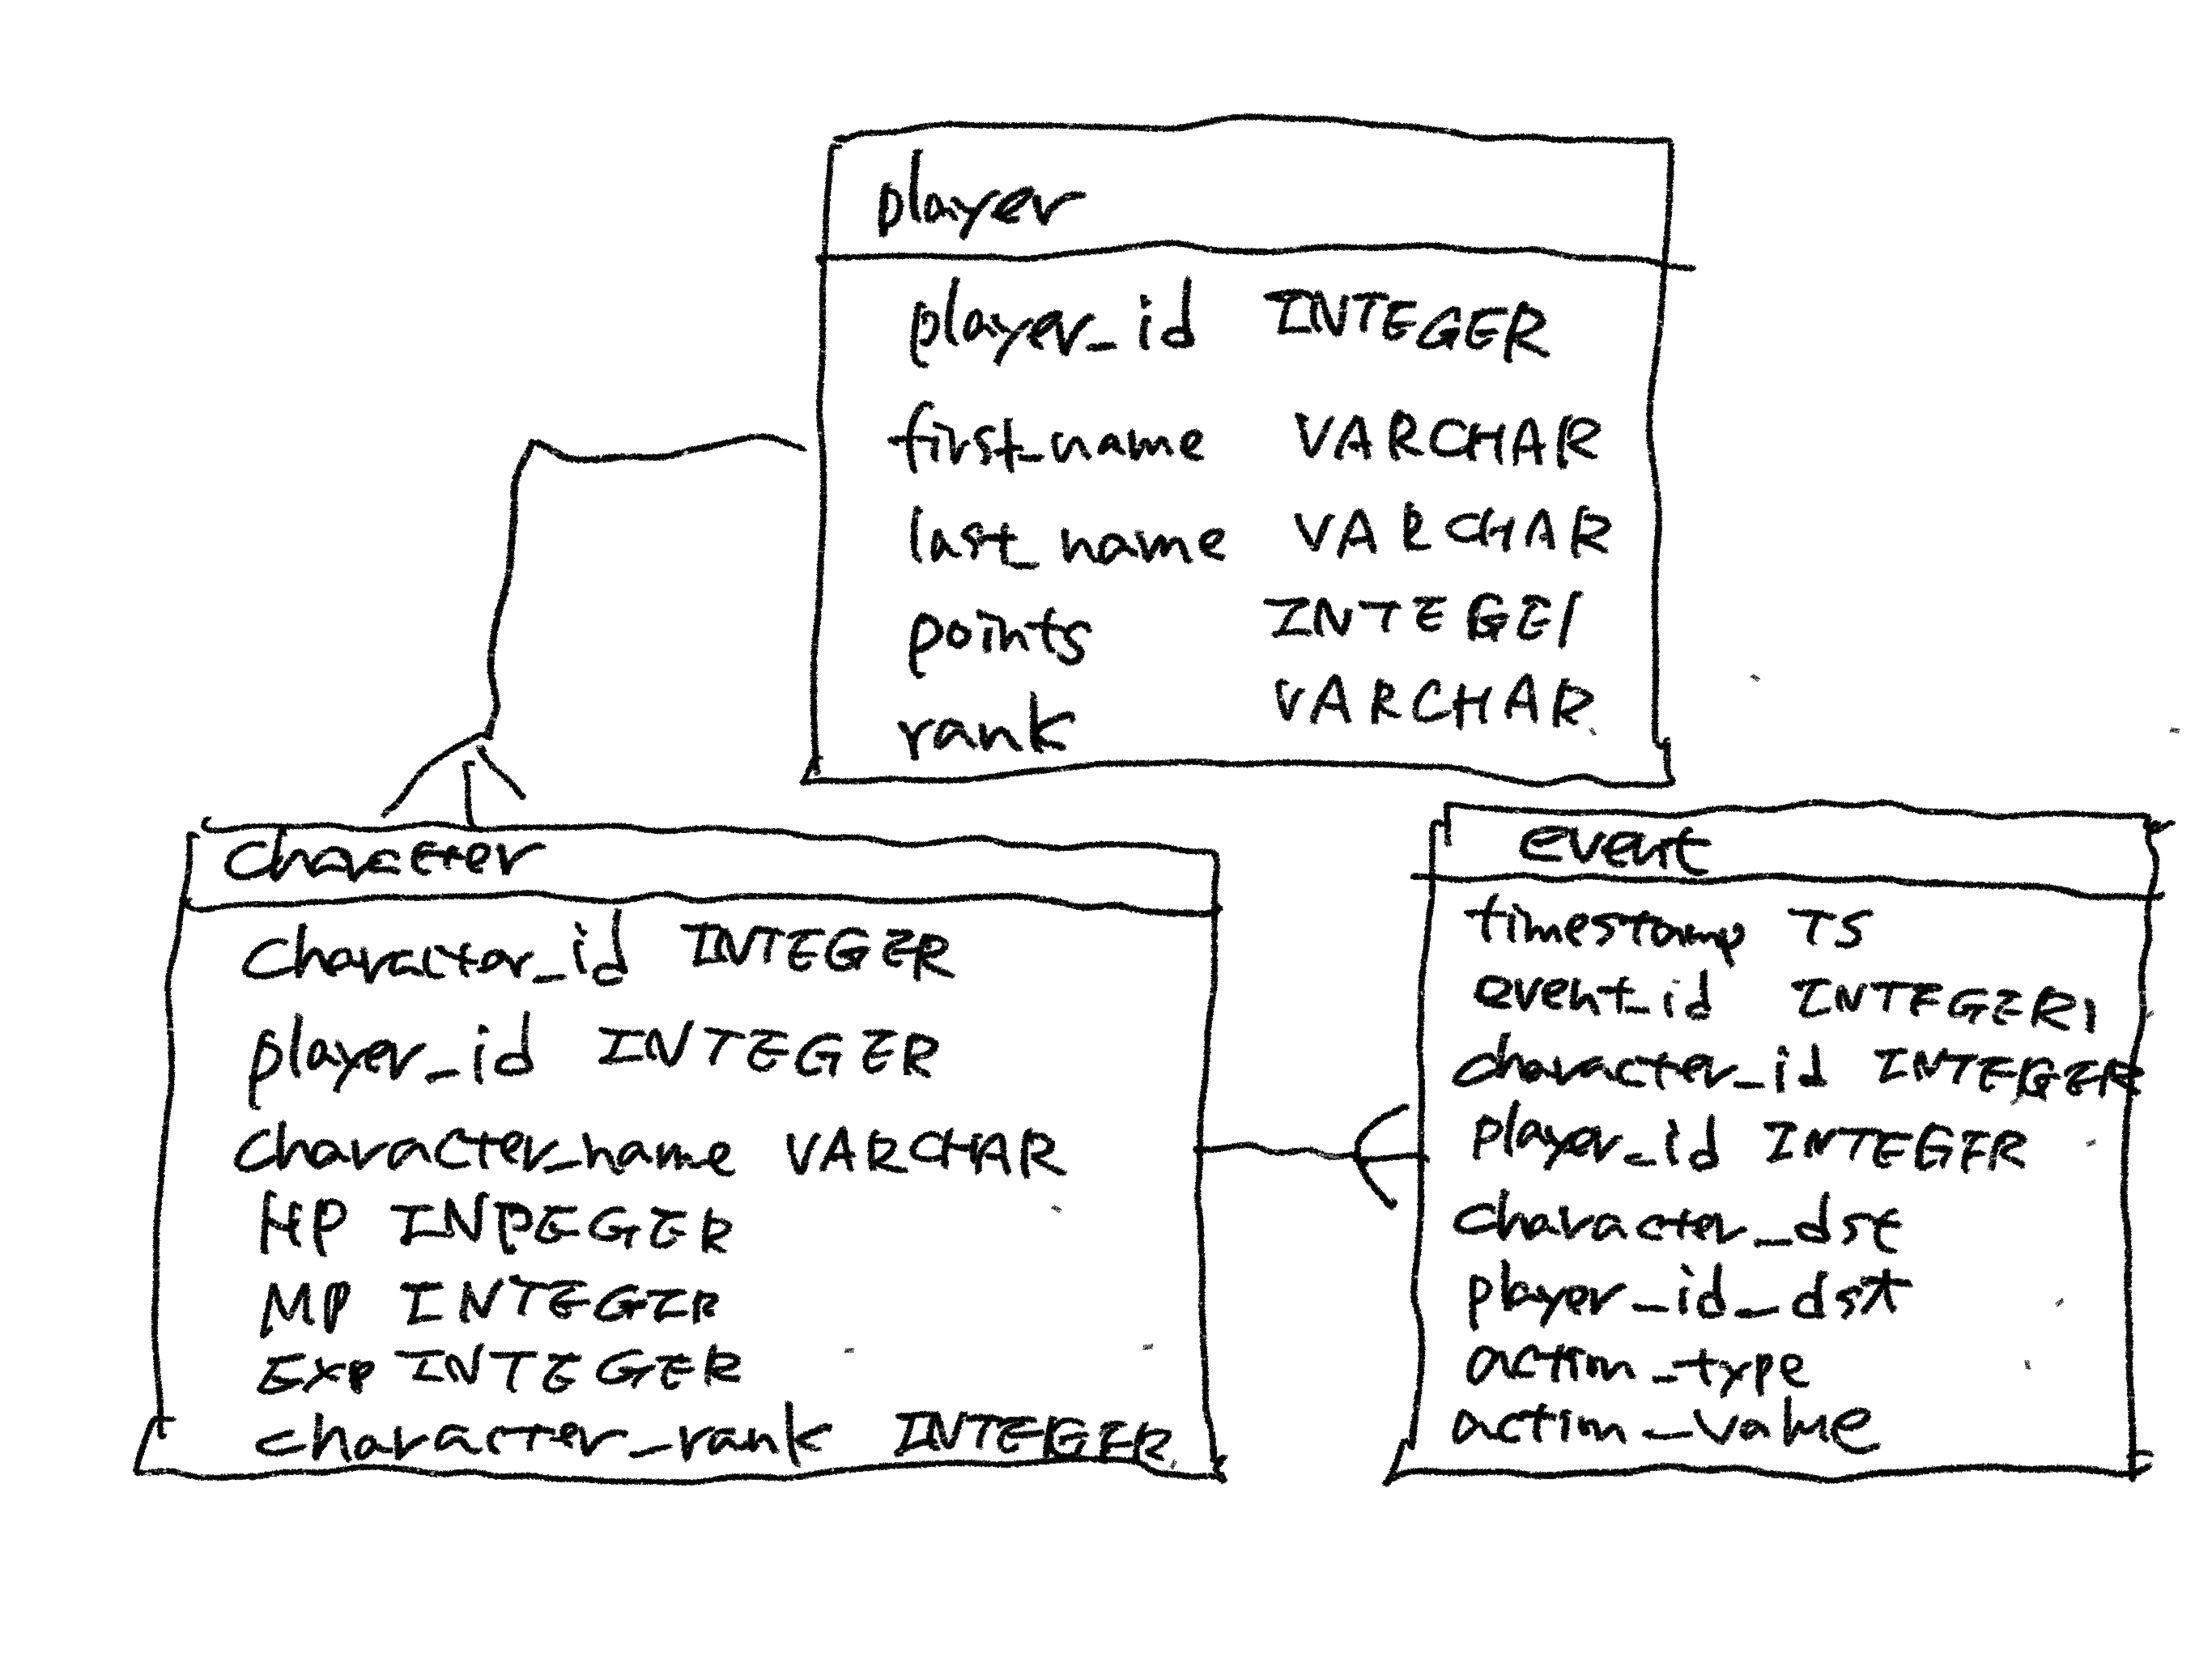 player
player_id INTEGER
first_name VARCHAR
last_name VARCHAR
points INTEGER
rank VARCHAR
character
character_id INTEGER
player_id INTEGER
character_name VARCHAR
HP INPEGER
MP INTEGER
Exp INTEGER
character_rank INTEGER
event
timestamp TS
event_id INTEGER
character_id INTEGER
player_id INTEGER
character_dst
player_id_dst
action_type
action_value